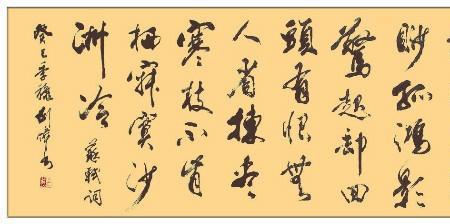 眇孤鴻影
驚起却回
頭有恨無
人省揀盡
寒枝不肯
栖寂寞沙
洲冷
蘇軾詞
癸巳季穐